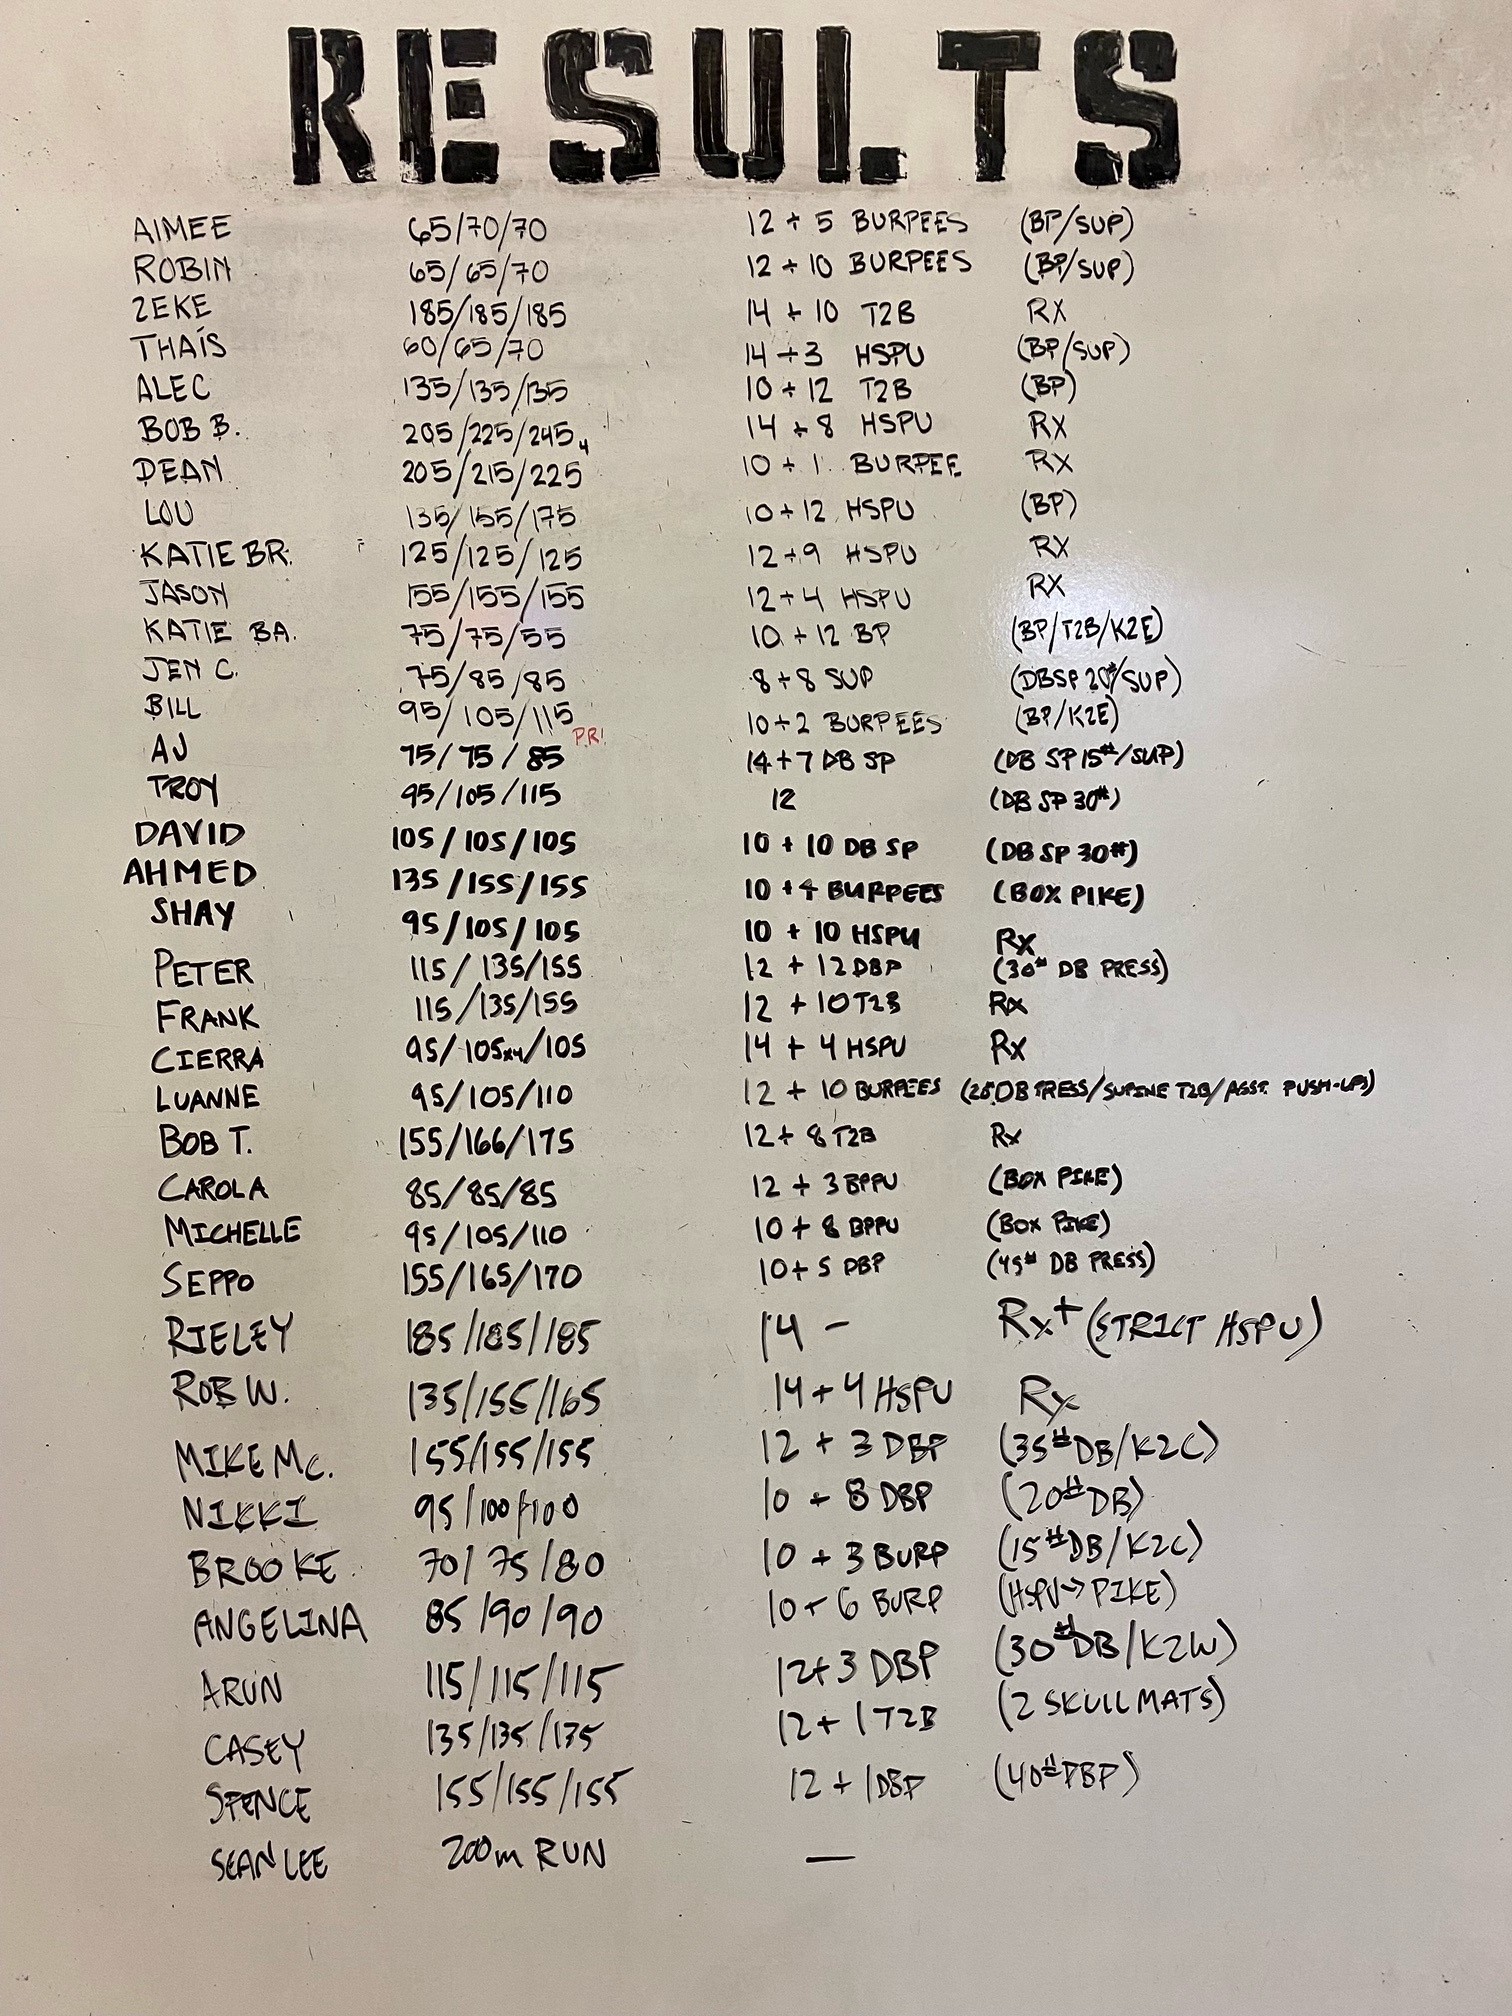 RESULTS
AIMEE 65/70/70 12 + 5 BURPEES (BP/SUP)
ROBIN 65/65/70 12 + 10 BURPEES (BP/SUP)
ZEKE 185/185/185 14 + 10 T2B RX
THAÍS 60/65/70 14 + 3 HSPU (BP/SUP)
ALEC 135/135/135 10 + 12 T2B (BP)
BOB B. 205/225/245 4 14 + 8 HSPU RX
DEAN 205/215/225 10 + 1 BURPEE RX
LOU 135/155/175 10 + 12 HSPU (BP)
KATIE BR. 125/125/125 12 + 9 HSPU RX
JASON 155/155/155 12 + 4 HSPU RX
KATIE BA. 75/75/55 10 + 12 BP (BP/T2B/K2E)
JEN C. 75/85/85 8 + 8 SUP (DBSP 20#/SUP)
BILL 95/105/115 10 + 2 BURPEES (BP/K2E)
AJ 75/75/85 PR! 14 + 7 DB SP (DB SP 15#/SUP)
TROY 95/105/115 12 (DB SP 30#)
DAVID 105/105/105 10 + 10 DB SP (DB SP 30#)
AHMED 135/155/155 10 + 4 BURPEES (BOX PIKE)
SHAY 95/105/105 10 + 10 HSPU Rx
PETER 115/135/155 12 + 12 DBP (30# DB PRESS)
FRANK 115/135/155 12 + 10 T2B Rx
CIERRA 95/105x4/105 14 + 4 HSPU Rx
LUANNE 95/105/110 12 + 10 BURPEES (25 DB PRESS/SUPINE T2B/ASST. PUSH-UPS)
BOB T. 155/166/175 12 + 8 T2B Rx
CAROLA 85/85/85 12 + 3 BPPU (BOX PIKE)
MICHELLE 95/105/110 10 + 8 BPPU (BOX PIKE)
SEPPO 155/165/170 10 + 5 DBP (45# DB PRESS)
RIELEY 185/185/185 14 - Rx+ (STRICT HSPU)
ROB W. 135/155/165 14 + 4 HSPU Rx
MIKE MC. 155/155/155 12 + 3 DBP (35# DB/K2C)
NIKKI 95/100/100 10 + 8 DBP (20# DB)
BROOKE 70/75/80 10 + 3 BURP (15# DB/K2C)
ANGELINA 85/90/90 10 + 6 BURP (HSPU→PIKE)
ARUN 115/115/115 12 + 3 DBP (30# DB/K2W)
CASEY 135/135/175 12 + 1 T2B (2 SKULL MATS)
SPENCE 155/155/155 12 + 1 DBP (40# DBP)
SEAN LEE 200m RUN —